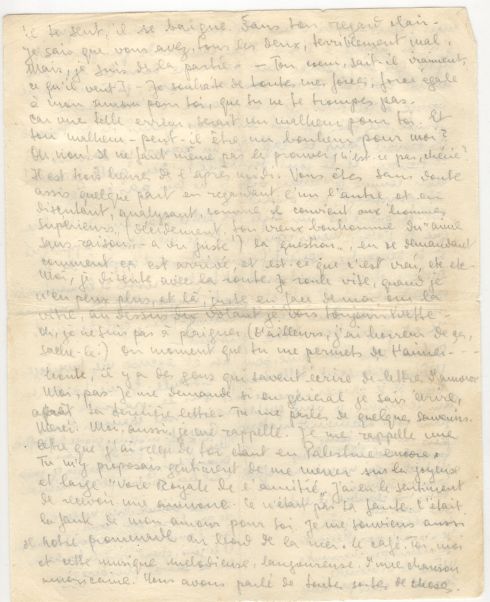 il te sent, il se baigne dans ton regard clair.
Je sais que vous avez, tous les deux, terriblement mal.
Mais, je suis de la partie. - Ton cœur, sait-il vraiment,
ce qu'il veut? - Je souhaite de toutes mes forces, force égale
à mon amour pour toi, que tu ne te trompes pas.
Car une telle erreur, serait un malheur pour toi. Et
ton malheur - peut-il être un bonheur pour moi?
Oh, non! Il ne faut même pas le prouver, n'est-ce pas, chérie?
Il est trois heures de l'après-midi. Vous êtes sans doute
assis quelque part en regardant l'un l'autre et en
discutant, analysant, comme il convient aux hommes
supérieurs, (décidément, ton vieux bonhomme
sans raisons, - a du juste) la "question", en se demandant
comment ça est arrivé, et est-ce que c'est vrai, etc etc-
Moi, je discute avec la route. Je roule vite, quand je
n'en peux plus, et là, juste en face de moi sur la
vitre, au dessus du volant je vois toujours
Oh, je ne suis pas à plaindre (d'ailleurs, j'ai horreur de ça,
sache-le!) du moment que tu me permets de t'aimer. - - -
il y a des gens qui savent écrire des lettres d'amour
Moi, pas. Je me demande si en général je sais écrire,
après ta dernière lettre. Tu me parles de quelques souvenirs.
Merci. Moi, aussi, je me rappelle. Je me rappelle une
lettre que j'ai reçu de toi étant en Palestine encore.
Tu m'y proposais gentiment de me mener sur la joyeuse
et large "Voie Royale de l'amitié". J'ai eu le sentiment
de recevoir une aumône. Ce n'était pas ta faute. C'était
la faute de mon amour pour toi. Je me souviens aussi
de notre promenade au bord de la mer. Le café. Toi, moi
et cette musique mélodieuse, langoureuse. D'une chanson
américaine. Nous avons parlé de toutes sortes de choses.